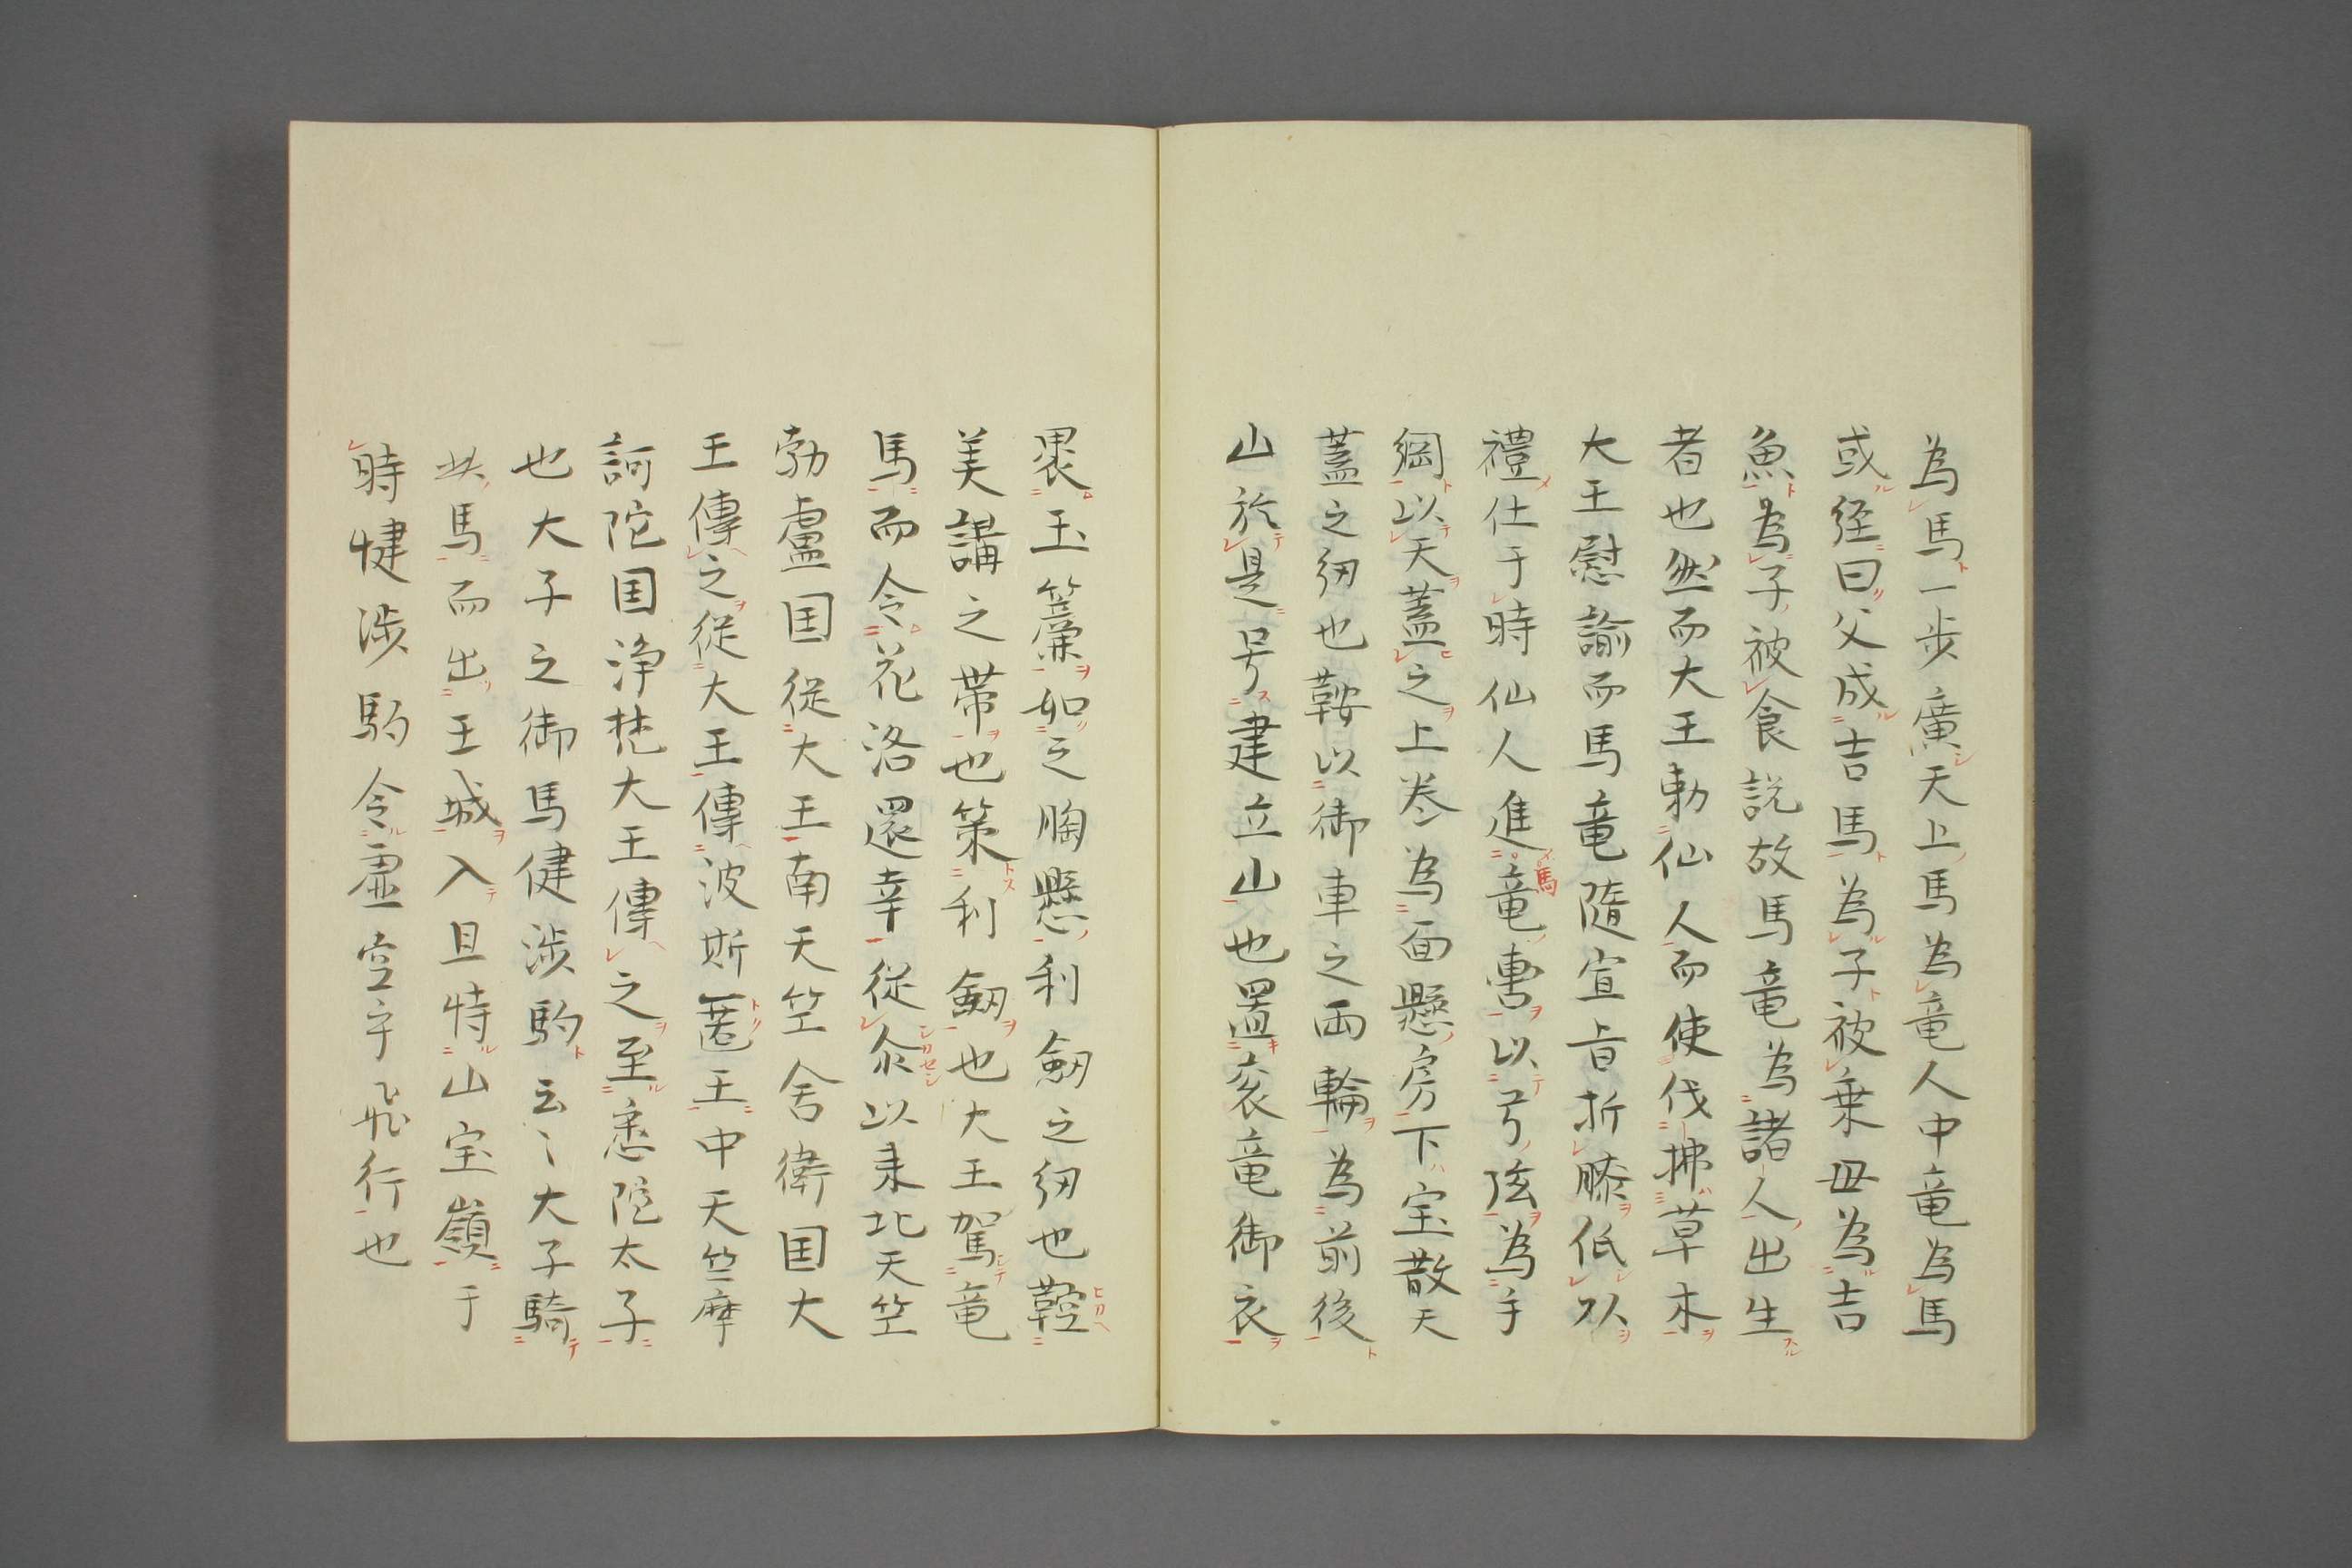 為馬一步廣天上馬為竜人中竜為馬
或経曰父成吉馬為子被乗毋為吉
魚為子被食説故馬竜為諸人出生
者也然而大王勅仙人而使伐拂草木
大王慰諭而馬竜隨宣旨折膝低以
禮仕于時仙人進竜轡以弓弦為手
綱以天蓋之上巻為面懸房下宝散天
蓋之紐也鞍以御車之両輪為前後
山於是号建立山也置衮竜御衣
褁玉簾如之胸懸利劔之紐也鞚
美講之帯也策利劔也大王駕竜
馬而令花洛還幸従尒以来北天竺
勃盧国従大王南天竺舎衛国大
王傳之従大王傳波斯匿王中天竺摩
訶陀国浄梵大王傳之至悉陀太子
也大子之御馬健渉駒云〻大子騎
此馬而出王城入且特山宝嶺于
時健渉駒令虚空宇飛行也